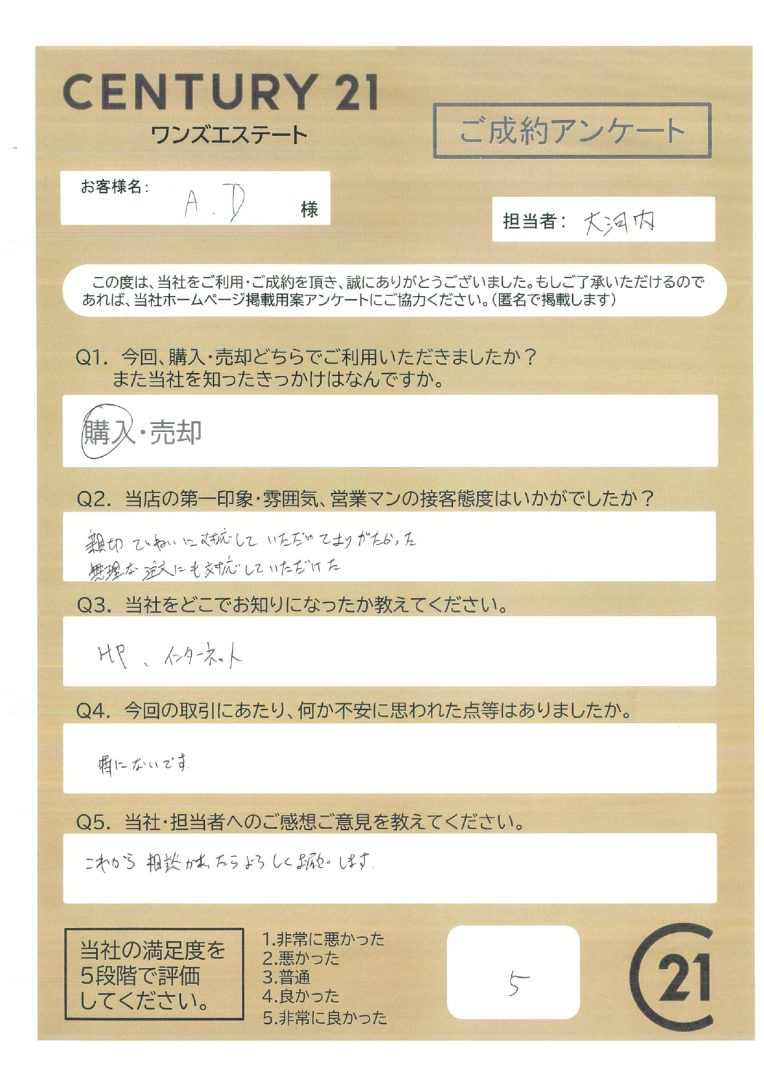 CENTURY 21
ワンズエステート
ご成約アンケート
お客様名:
A.D
様
担当者: 大河内
この度は、当社をご利用・ご成約を頂き、誠にありがとうございました。もしご了承いただけるので
あれば、当社ホームページ掲載用案アンケートにご協力ください。（匿名で掲載します）
Q1. 今回、購入・売却どちらでご利用いただきましたか？
また当社を知ったきっかけはなんですか。
購入・売却
Q2. 当店の第一印象・雰囲気、営業マンの接客態度はいかがでしたか？
親切ていねいに対応していただいてありがたかった
無理な注文にも対応していただけた
Q3. 当社をどこでお知りになったか教えてください。
HP、インターネット
Q4. 今回の取引にあたり、何か不安に思われた点等はありましたか。
特にないです
Q5. 当社・担当者へのご感想ご意見を教えてください。
これから相談があったらよろしくお願いします.
当社の満足度を
5段階で評価
してください。
1.非常に悪かった
2.悪かった
3.普通
4.良かった
5.非常に良かった
5
21